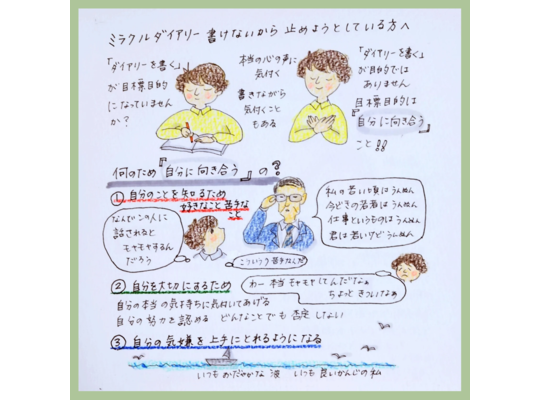 ミラクルダイアリー 書けないから 止めようとしている方へ
「ダイアリーを書く」
が目標目的
になっていません
か?
本当の心の声に
気付く
書きながら
気付くこと
もある
「ダイアリーを書く」
が目的では
ありません
目標目的は
『自分に向き合う』
こと!!
何のため『自分に向き合う』の?
① 自分のことを知るため
好きなこと 苦手な
こと
なんでこの人に
話されると
モヤモヤするん
だろう
こういうの 苦手なんだ
私の若い頃はうんぬん
今どきの若者はうんぬん
仕事というものはうんぬん
君は若いけどうんぬん
② 自分を大切にするため
わー 本当 モヤモヤしてんだなぁ
ちょっと きついなぁ
自分の本当の気持ちに気付いてあげる
自分の努力を認める どんなことでも 否定しない
③ 自分の気嫌を上手にとれるようになる
いつもおだやかな波 いつも良いかんじの私